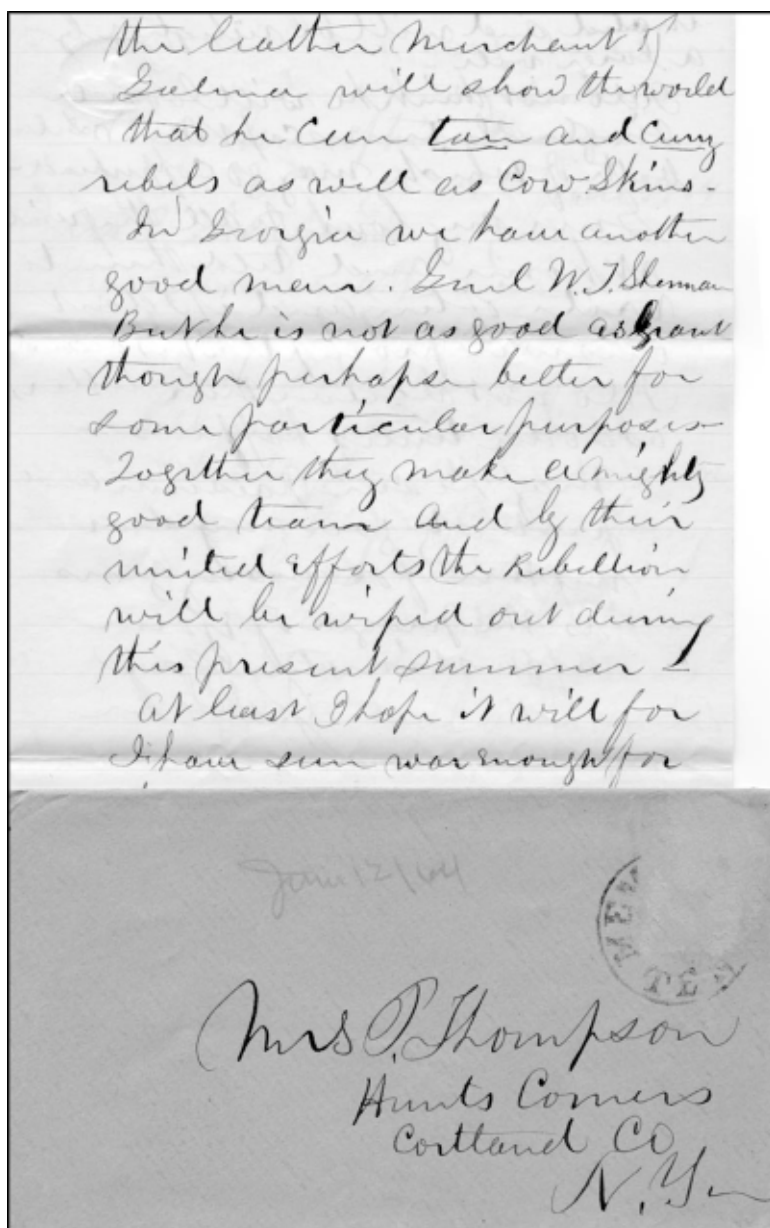 the leather Merchant of
Galena will show the world
that he can tan and Curry
rebels as well as Cow Skins -
In Georgia we have another
good man. Genl W. T. Sherman
But he is not as good as Grant
though perhaps better for
some particular purposes -
Together they make a mighty
good team and by their
united efforts the Rebellion
will be wiped out during
this present summer -
At least I hope it will for
I have seen war enough for
Jan 12/64
MEM
TEN
Mrs P. Thompson
Hunts Corners
Cortland Co
N. Y.